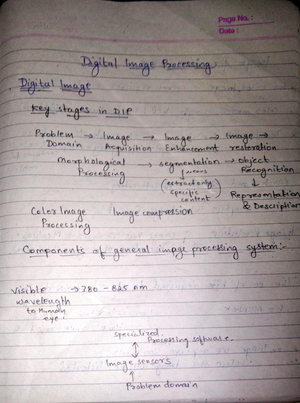 Page No. :
Date :
Digital Image Processing
Digital Image
Key stages in DIP
Problem Domain → Image Acquisition → Image Enhancement → Image restoration →
Morphological Processing → segmentation → object Recognition
(extracting specific content)
↓
Representation & Description
Color Image Processing Image compression
Components of general image processing system:-
Visible wavelength to Human eye → 780 -
nm
specialized Processing software
↕
Image sensors
↑
Problem domain